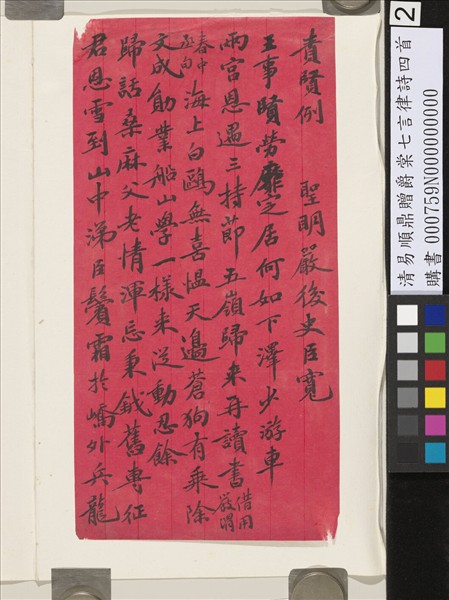 責賢例 聖明嚴後史臣寬
王事賢勞靡定居何如下澤少游車
兩宮恩遇三持節五嶺歸來再讀書借用嚴明
春中丞句海上白鷗無喜愠天邊蒼狗有乘除
文成勛業船山學一樣來從動忍餘
歸話桑麻父老情渾忘秉鉞舊專征
君恩雪到山中涕臣鬢霜於嶠外兵龍
2
清易順鼎贈爵棠七言律詩四首
購書 000759N000000000